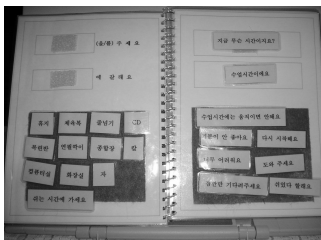 (을/를) 주 세 요
에 갈 래 요
휴지
체육복
줄넘기
CD
색연필
연필깎이
종합장
칼
컴퓨터실
화장실
자
쉬는 시간에 가세요
지금 무슨 시간이지요?
수업시간이에요
수업시간에는 움직이면 안돼요
기분이 안 좋아요
다시 시작해요
너무 어려워요
도와 주세요
조금만 기다려주세요
쉬었다 할래요